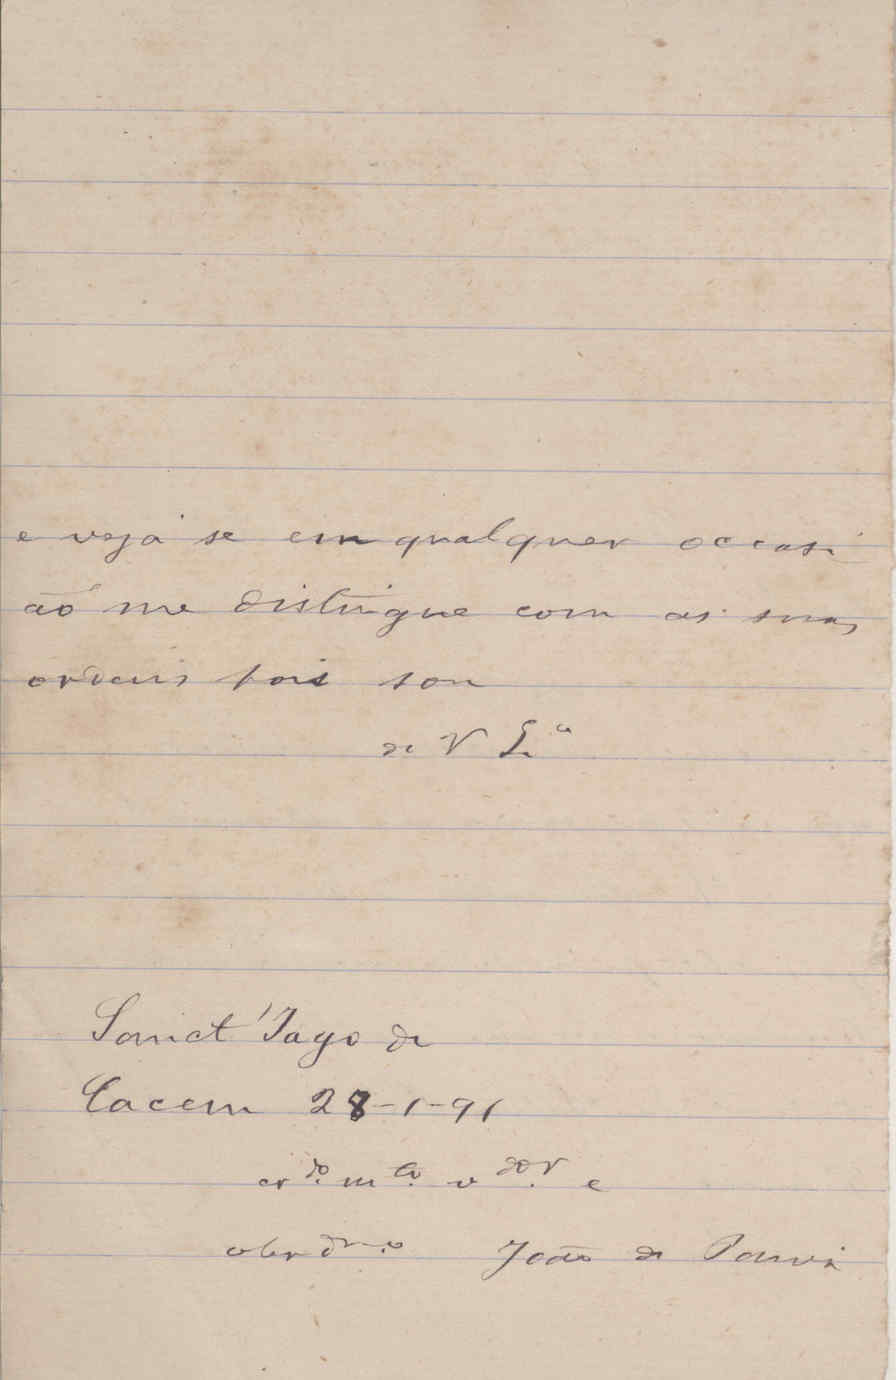 e veja se em qualquer occasi
ão me distingue com as suas
ordens pois sou
de V Ex.ª
Sanct'Iago de
Cacem 28-1-91
cr.do m.to v.dor e
João de